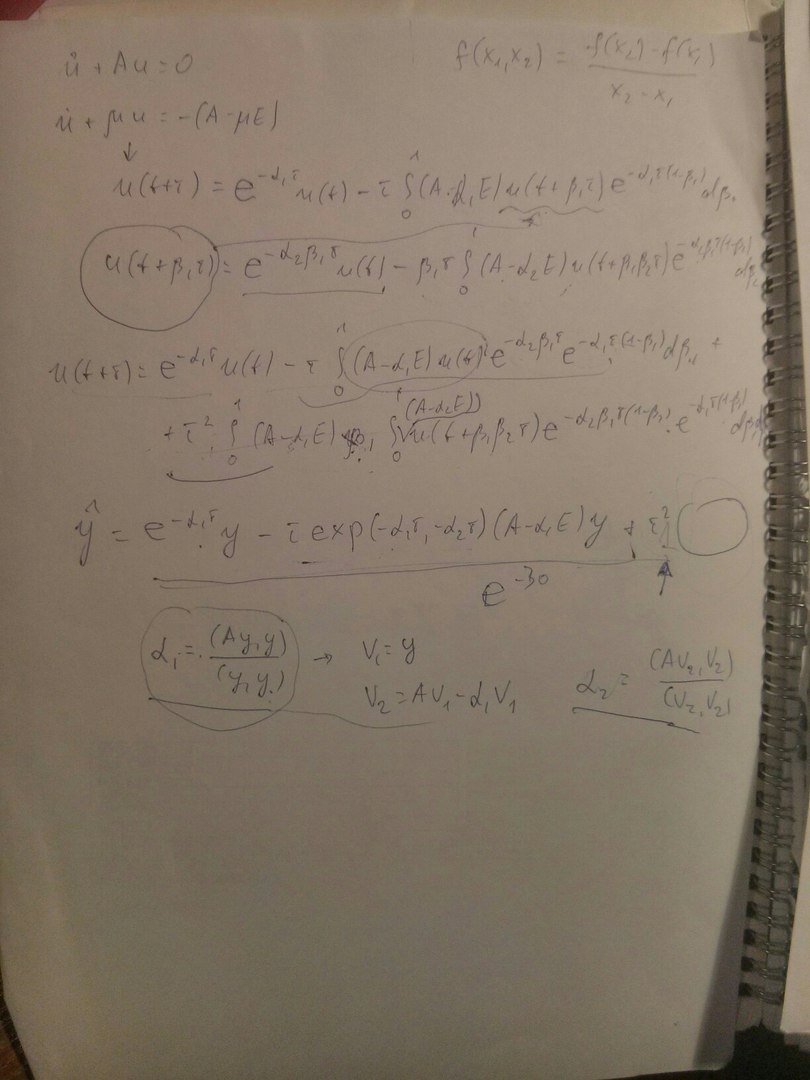 u̇ + Au = 0
f(x₁,x₂) = (f(x₂) - f(x₁)) / (x₂ - x₁)
u̇ + μu = -(A-μE)
↓
u(t+τ) = e^{-α₁τ} u(t) - τ ∫₀¹ (A-α₁E) u(t+β₁τ) e^{-α₁τ(1-β₁)} dβ₁
u(t+β₁τ) = e^{-α₂β₁τ} u(t) - β₁τ ∫₀¹ (A-α₂E) u(t+β₁β₂τ) e^{-α₂β₁τ(1-β₂)} dβ₂
u(t+τ) = e^{-α₁τ} u(t) - τ ∫₀¹ (A-α₁E) u(t) e^{-α₂β₁τ} e^{-α₁τ(1-β₁)} dβ₁ +
+ τ² ∫₀¹ (A-α₁E) β₁ ∫₀¹ (A-α₂E) u(t+β₁β₂τ) e^{-α₂β₁τ(1-β₂)} · e^{-α₁τ(1-β₁)}
ŷ = e^{-α₁τ} y - τ exp(-α₁τ, -α₂τ) (A-α₁E) y + τ²
e^{-30}
α₁ = (Ay,y) / (y,y) → V₁ = y
V₂ = AV₁ - α₁V₁
α₂ = (AV₂,V₂) / (V₂,V₂)